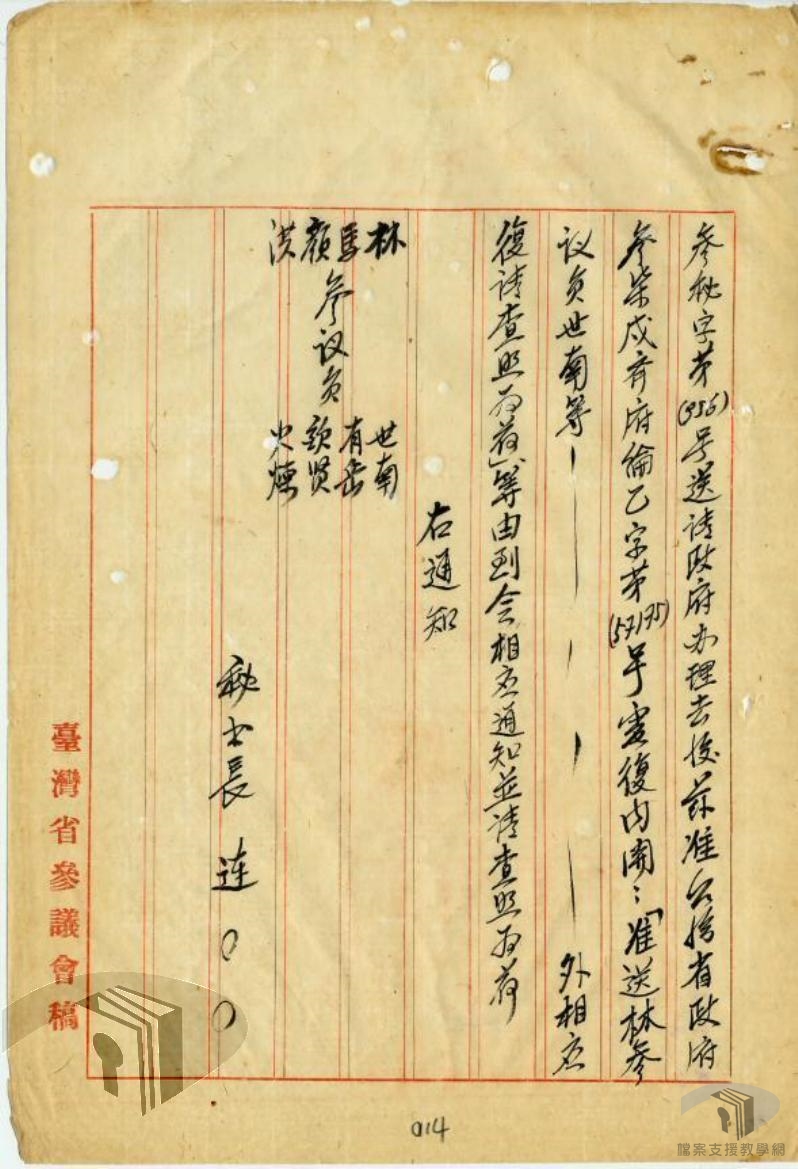 參秘字第(996)号送請政府办理去後茲准台灣省政府
參柒戍齊府綸乙字第(57175)号電復内開：「准送林參
议員世南等－－－－外相应
復請查照为荷」等由到会相应通知並請查照为荷
右通知
林 世南
馬 有岳
顏 參议員 欽贤
洪 火煉
秘书長 连○○
臺灣省參議會稿
014
檔案支援教學網